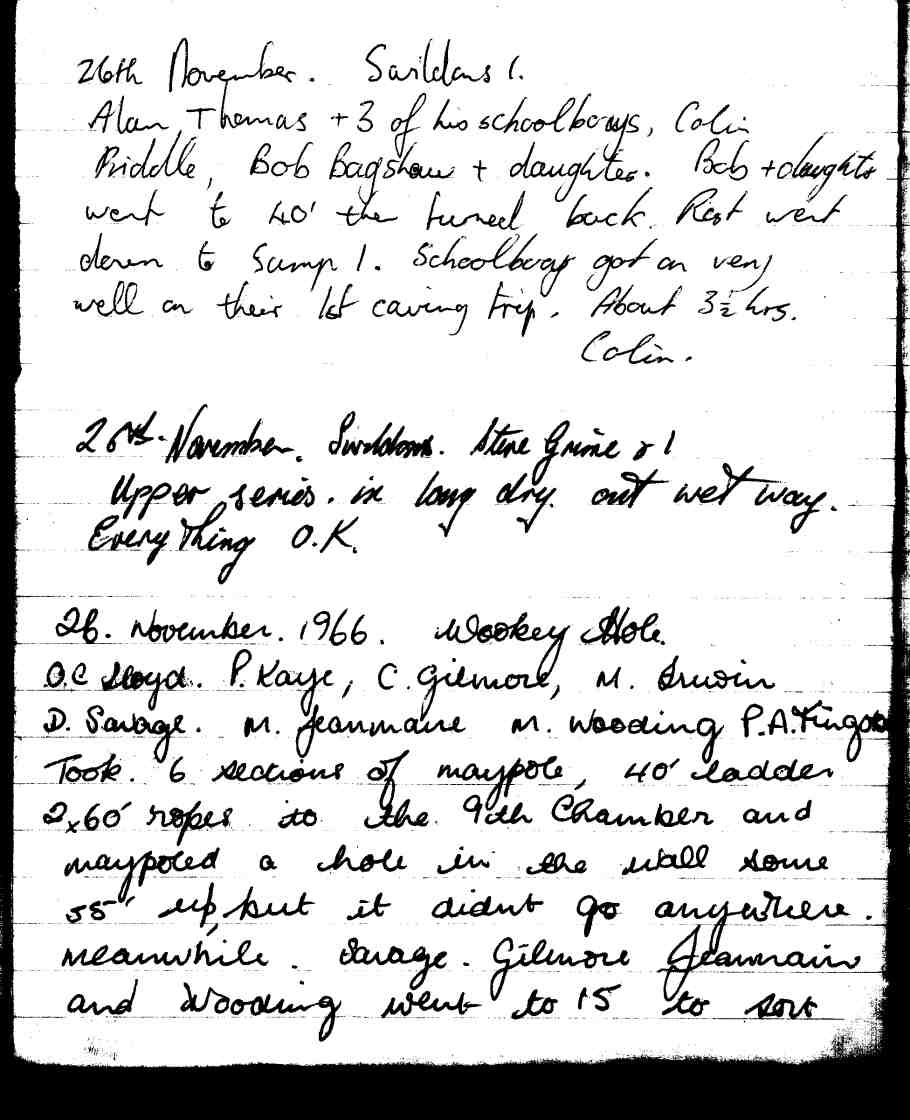 26th November. Swildons 1.
Alan Thomas + 3 of his schoolboys, Colin
Priddle, Bob Bagshaw + daughter. Bob + daughter
went to 40' the turned back. Rest went
down to Sump 1. Schoolboys got on very
well on their 1st caving trip. About 3½ hrs.
Colin.
November. Swildons. Steve Grime & 1
Upper series. in long dry. out wet way.
Everything O.K.
26. November. 1966. Wookey Hole.
O.C Lloyd. P. Kaye, C. Gilmore, M.
D. Savage. M. Jeanmaire M. Wooding P.A. Kingston
Took. 6 sections of maypole, 40' ladder
2x60' ropes to the 9th Chamber and
maypoled a hole in the wall some
55' up, but it didnt go anywhere.
meanwhile. Savage. Gilmore Jeanmaire
and Wooding went to 15 to sort